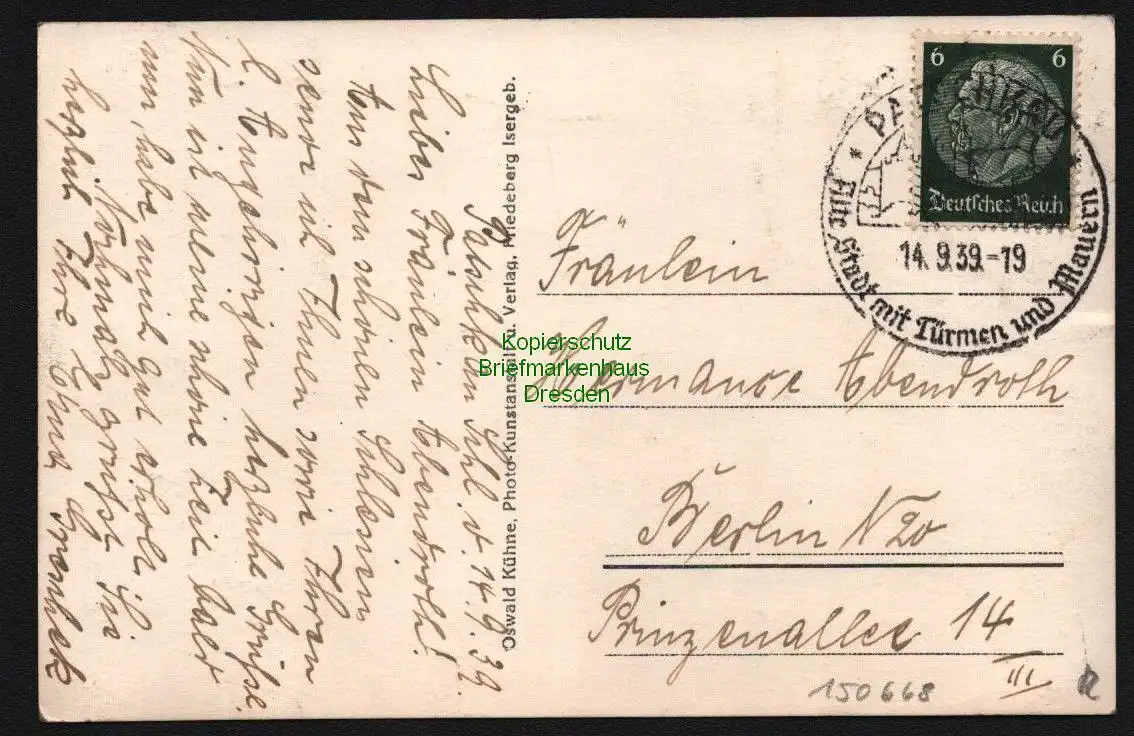 Patschkau d. 14.9.39.
Liebes Fräulein Abendroth!
Aus dem schönen Schlesien
sende ich Ihnen sowie Ihren
l. Angehörigen herzliche Grüße.
Nun ist meine schöne Zeit bald
um, habe mich gut erholt.
Nochmals grüßt Sie
herzlich Ihre Erna
Oswald Kühne, Photo-Kunstanstalt u. Verlag, Friedeberg Isergeb.
6 6
Deutsches Reich
PATSCHKAU
14.9.39.-19
Alte Stadt mit Türmen und Mauern
Fräulein
Hermance Abendroth
Berlin N 20
Prinzenallee 14
III
150668
Kopierschutz
Briefmarkenhaus
Dresden